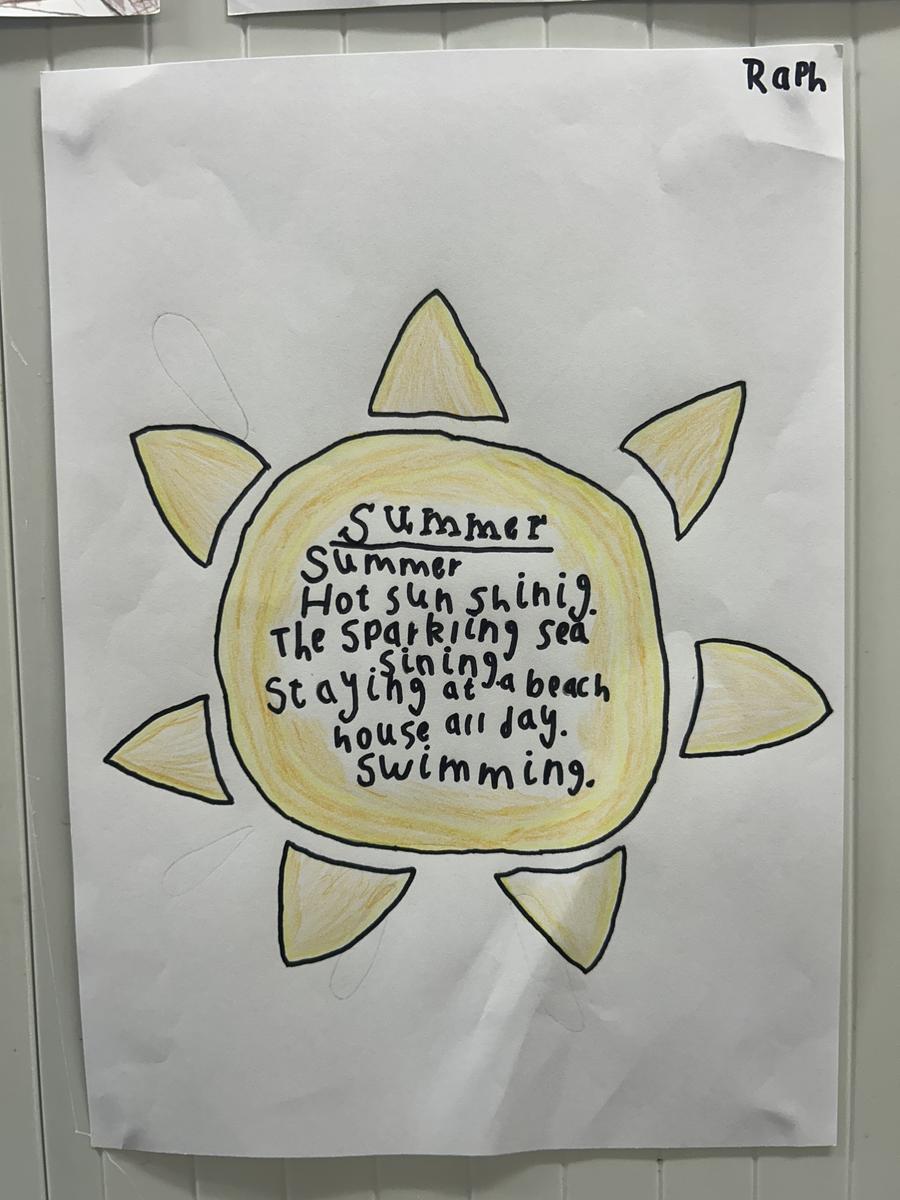 Raph
Summer
Summer
Hot sun shinig.
The sparkling sea
sining.
Staying at a beach
house all day.
swimming.